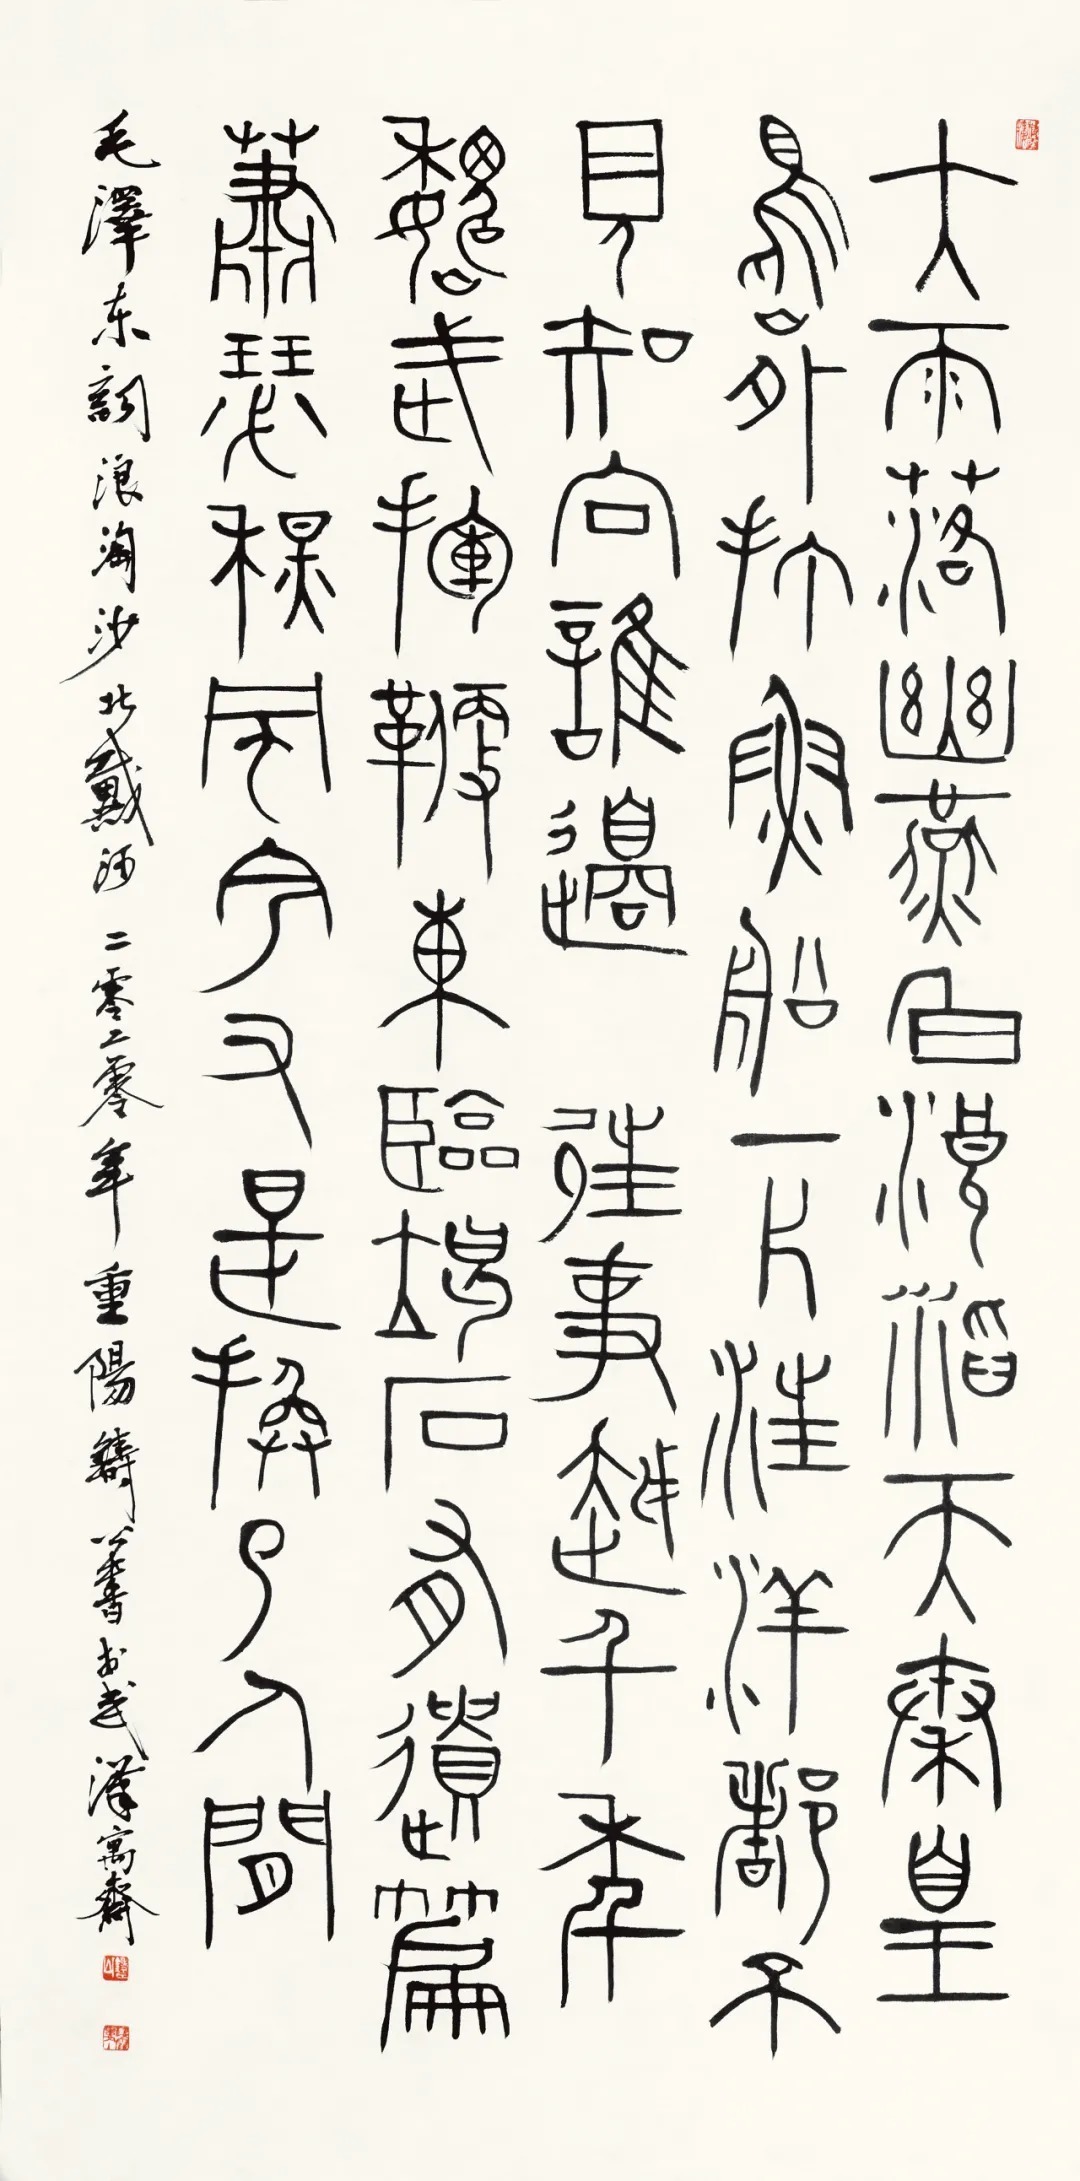 大雨落幽燕白浪滔天秦皇
島外打魚船一片汪洋都不
見知向誰邊 往事越千年
魏武揮鞭東臨碣石有遺篇
蕭瑟秋風今又是換了人間
毛澤東詞浪淘沙北戴河 二零二零年重陽鑄公書於武漢寓齋